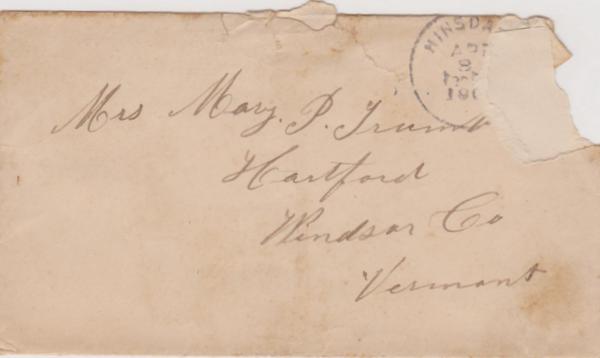 HINSDA
APR
8
190
Mrs Mary. P. Trumb
Hartford
Windsor Co
Vermont